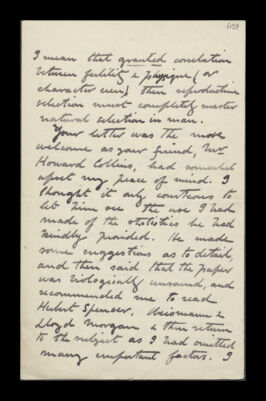 I mean that granted correlation
between fertility & physique (or
character even) then reproductive
selection must completely master
natural selection in man.
Your letter was the more
welcome as your friend, Mr
Howard Collins, had somewhat
upset my peace of mind. I
thought it only courteous to
let him see the use I had
made of the statistics he had
kindly provided. He made
some suggestions as to detail,
and then said that the paper
was biologically unsound, and
recommended me to read
Herbert Spencer, Weismann &
Lloyd Morgan & then return
to the subject as I had omitted
many important factors. I